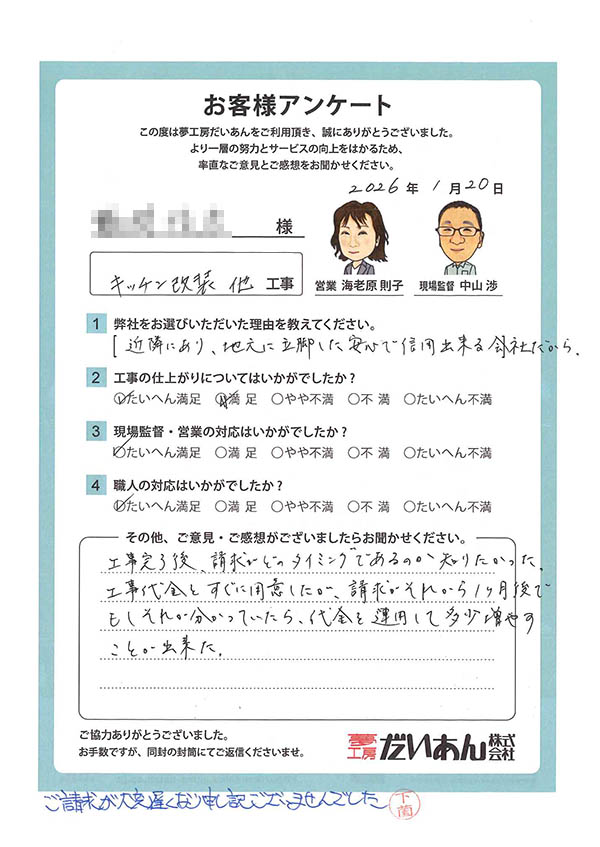 お客様アンケート
この度は夢工房だいあんをご利用頂き、誠にありがとうございました。
より一層の努力とサービスの向上をはかるため、
率直なご意見とご感想をお聞かせください。
2026年 1月20日
様
キッチン改装 他 工事
営業 海老原 則子
現場監督 中山 渉
1 弊社をお選びいただいた理由を教えてください。
近隣にあり、地元に立脚した安心で信用出来る会社だから。
2 工事の仕上がりについてはいかがでしたか？
○たいへん満足 ○満 足 ○やや不満 ○不 満 ○たいへん不満
3 現場監督・営業の対応はいかがでしたか？
○たいへん満足 ○満 足 ○やや不満 ○不 満 ○たいへん不満
4 職人の対応はいかがでしたか？
○たいへん満足 ○満 足 ○やや不満 ○不 満 ○たいへん不満
その他、ご意見・ご感想がございましたらお聞かせください。
工事完了後、請求がどのタイミングであるのか知りたかった。
工事代金をすぐに用意したが、請求がそれから1ヶ月後で
もしそれが分かっていたら、代金を運用して多少増やす
ことが出来た。
ご協力ありがとうございました。
お手数ですが、同封の封筒にてご返信くださいませ。
夢工房 だいあん 株式会社
ご請求が大変遅くなり申し訳ございませんでした 下薗